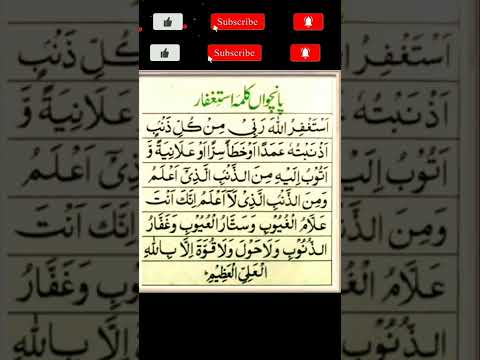 Subscribe
Subscribe
پانچواں کلمہ استغفار
اَسْتَغْفِرُ اللهَ رَبِّىْ مِنْ كُلِّ ذَنْبٍ
اَذْنَبْتُهٗ عَمَدًا اَوْخَطَأً سِرًّا اَوْ عَلَانِيَةً وَّ
اَتُوْبُ اِلَيْهِ مِنَ الذَّنْبِ الَّذِىْٓ اَعْلَمُ
وَمِنَ الذَّنْبِ الَّذِىْ لَآ اَعْلَمُ اِنَّكَ اَنْتَ
عَلَّامُ الْغُيُوْبِ وَسَتَّارُ الْعُيُوْبِ وَغَفَّارُ
الذُّنُوْبِ وَلَاحَوْلَ وَلَاقُوَّةَ اِلَّا بِاللهِ
الْعَلِىِّ الْعَظِيْمِ ؕ